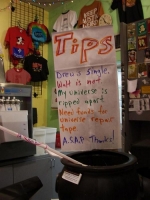 Tips
Drew's single.
Walt is not.
My universe is
ripped apart
Need funds for
universe repair
tape
A.S.A.P. Thanks!